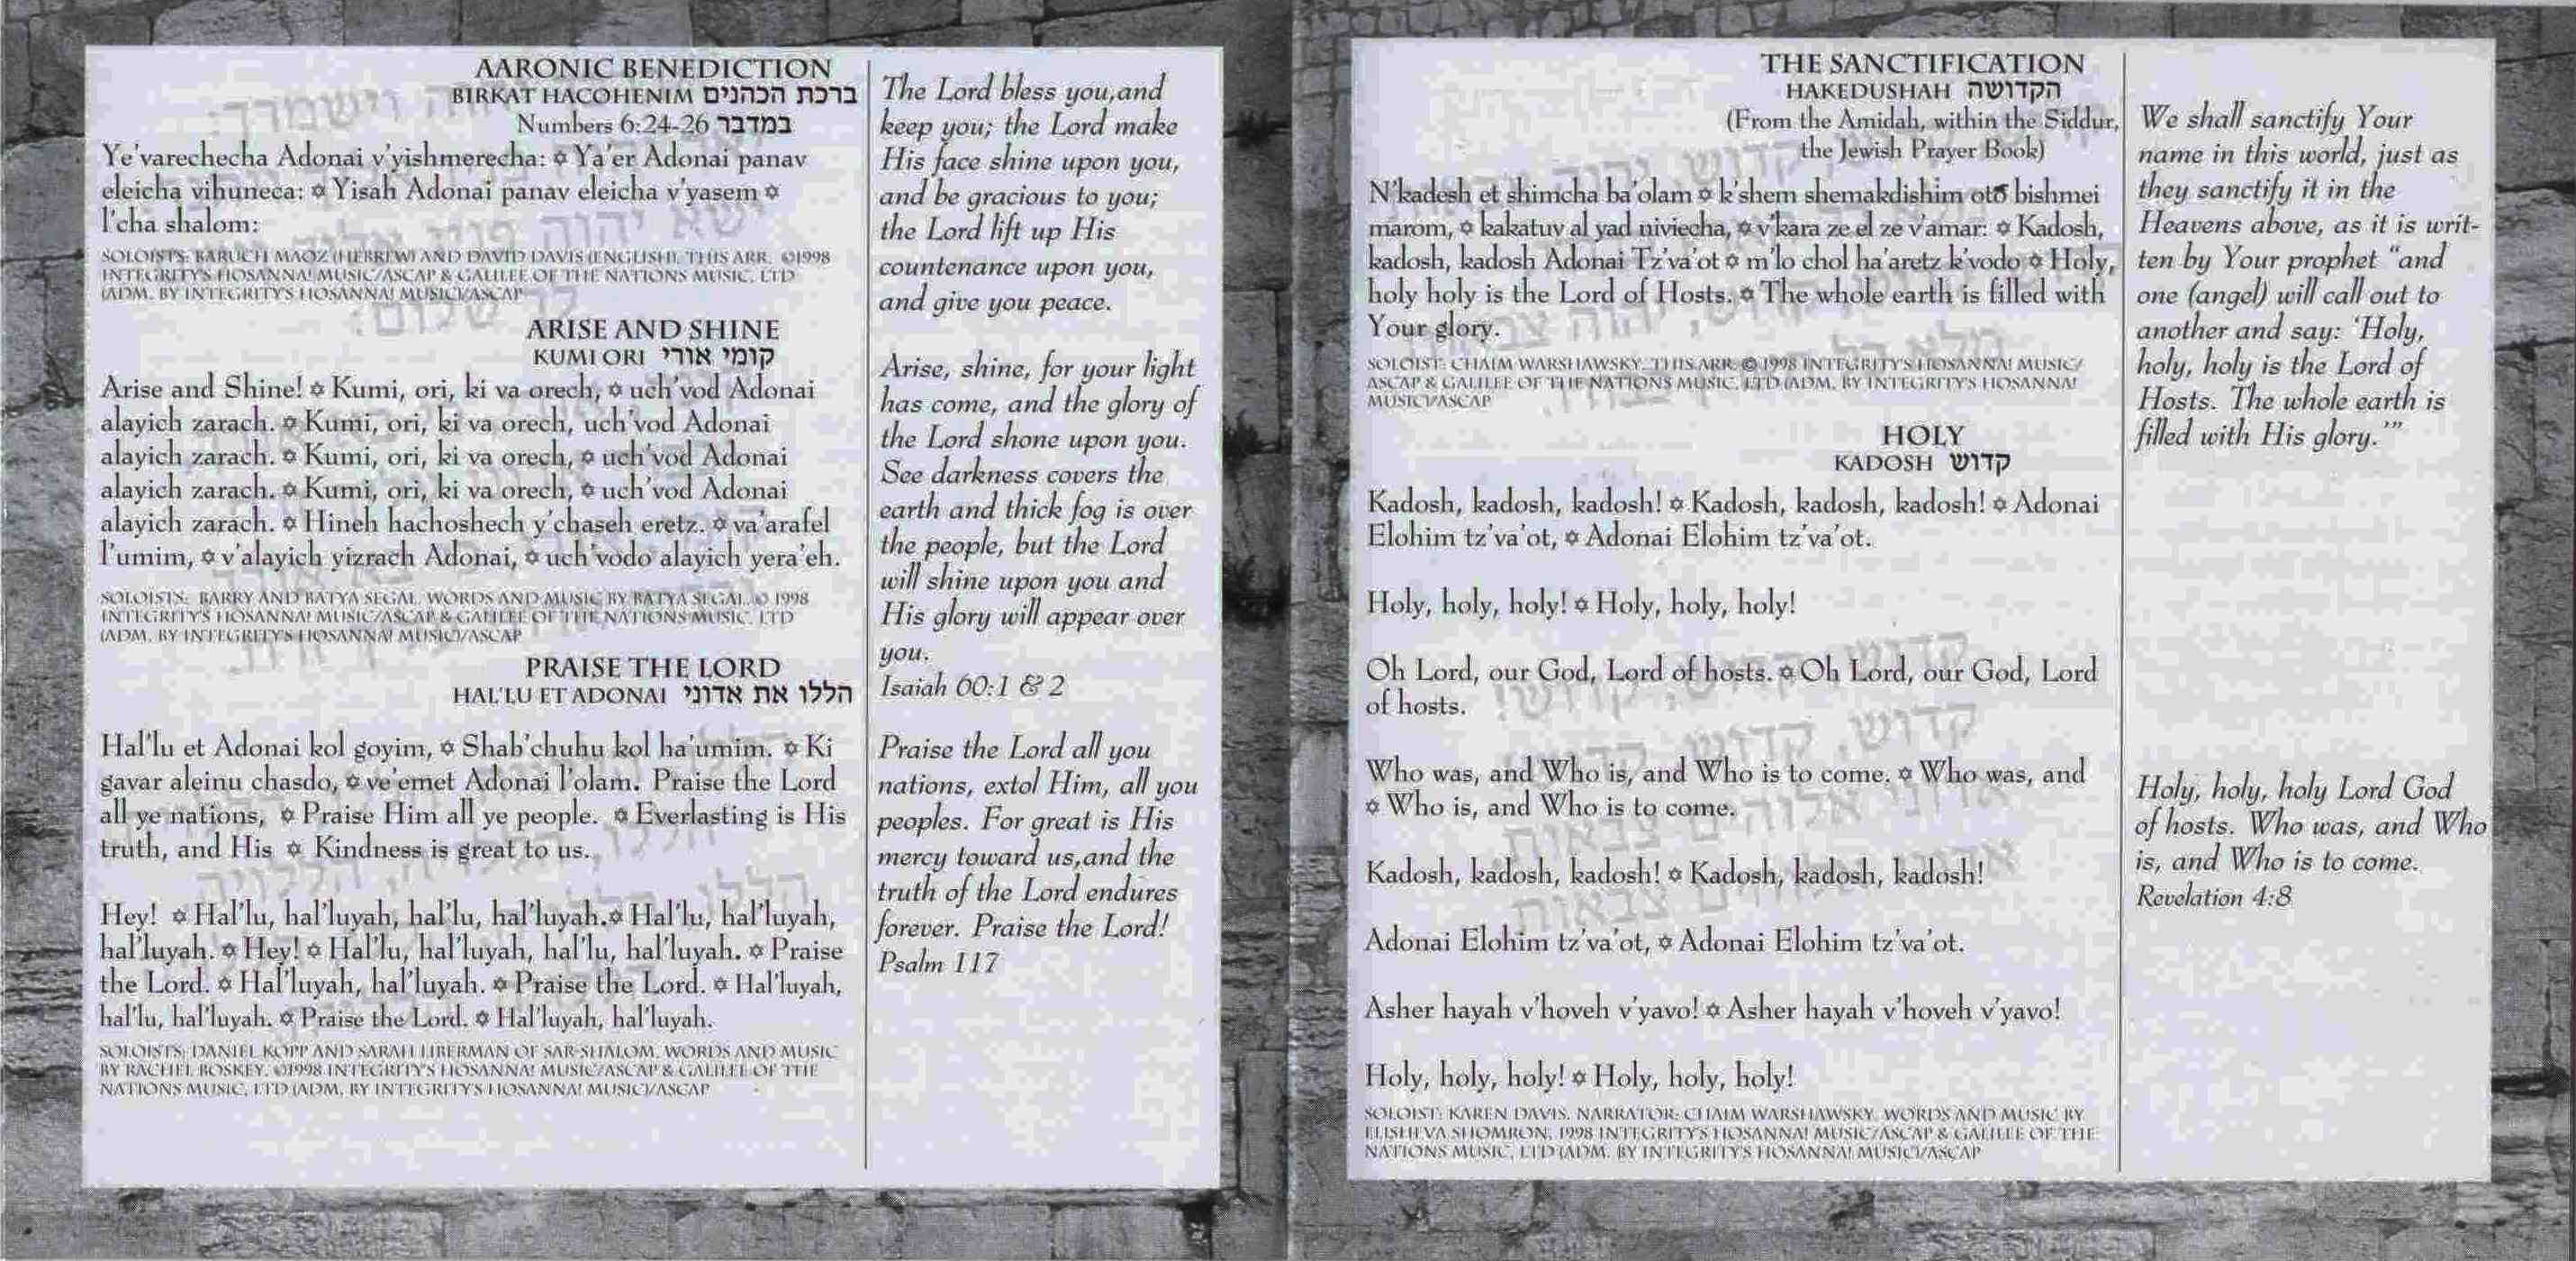 AARONIC BENEDICTION
BIRKAT HACOHENIM ברכת הכהנים
Numbers 6:24-26 במדבר
Ye'varechecha Adonai v'yishmerecha: ✡ Ya'er Adonai panav
eleicha vihuneca: ✡ Yisah Adonai panav eleicha v'yasem ✡
l'cha shalom:
SOLOISTS: BARUCH MAOZ (HEBREW) AND DAVID DAVIS (ENGLISH). THIS ARR. ©1998
INTEGRITY'S HOSANNA! MUSIC/ASCAP & GALILEE OF THE NATIONS MUSIC, LTD
(ADM. BY INTEGRITY'S HOSANNA! MUSIC)/ASCAP
ARISE AND SHINE
KUMI ORI קומי אורי
Arise and Shine! ✡ Kumi, ori, ki va orech, ✡ uch'vod Adonai
alayich zarach. ✡ Kumi, ori, ki va orech, uch'vod Adonai
alayich zarach. ✡ Kumi, ori, ki va orech, ✡ uch'vod Adonai
alayich zarach. ✡ Kumi, ori, ki va orech, ✡ uch'vod Adonai
alayich zarach. ✡ Hineh hachoshech y'chaseh eretz. ✡ va'arafel
l'umim, ✡ v'alayich yizrach Adonai, ✡ uch'vodo alayich yera'eh.
SOLOISTS: BARRY AND BATYA SEGAL. WORDS AND MUSIC BY BATYA SEGAL. © 1998
INTEGRITY'S HOSANNA! MUSIC/ASCAP & GALILEE OF THE NATIONS MUSIC, LTD
(ADM. BY INTEGRITY'S HOSANNA! MUSIC)/ASCAP
PRAISE THE LORD
HAL'LU ET ADONAI הללו את אדוני
Hal'lu et Adonai kol goyim, ✡ Shab'chuhu kol ha'umim. ✡ Ki
gavar aleinu chasdo, ✡ ve'emet Adonai l'olam. Praise the Lord
all ye nations, ✡ Praise Him all ye people. ✡ Everlasting is His
truth, and His ✡ Kindness is great to us.
Hey! ✡ Hal'lu, hal'luyah, hal'lu, hal'luyah.✡ Hal'lu, hal'luyah,
hal'luyah. ✡ Hey! ✡ Hal'lu, hal'luyah, hal'lu, hal'luyah. ✡ Praise
the Lord. ✡ Hal'luyah, hal'luyah. ✡ Praise the Lord. ✡ Hal'luyah,
hal'lu, hal'luyah. ✡ Praise the Lord. ✡ Hal'luyah, hal'luyah.
SOLOISTS: DANIEL KOPP AND SARAH LIBERMAN OF SAR-SHALOM. WORDS AND MUSIC
BY RACHEL BOSKEY. ©1998 INTEGRITY'S HOSANNA! MUSIC/ASCAP & GALILEE OF THE
NATIONS MUSIC, LTD (ADM. BY INTEGRITY'S HOSANNA! MUSIC)/ASCAP
The Lord bless you,and
keep you; the Lord make
His face shine upon you,
and be gracious to you;
the Lord lift up His
countenance upon you,
and give you peace.
Arise, shine, for your light
has come, and the glory of
the Lord shone upon you.
See darkness covers the
earth and thick fog is over
the people, but the Lord
will shine upon you and
His glory will appear over
you.
Isaiah 60:1 & 2
Praise the Lord all you
nations, extol Him, all you
peoples. For great is His
mercy toward us,and the
truth of the Lord endures
forever. Praise the Lord!
Psalm 117
THE SANCTIFICATION
HAKEDUSHAH הקדושה
(From the Amidah, within the Siddur,
the Jewish Prayer Book)
N'kadesh et shimcha ba'olam ✡ k'shem shemakdishim oto bishmei
marom, ✡ kakatuv al yad niviecha, ✡ v'kara ze el ze v'amar: ✡ Kadosh,
kadosh, kadosh Adonai Tz'va'ot ✡ m'lo chol ha'aretz k'vodo ✡ Holy,
holy holy is the Lord of Hosts. ✡ The whole earth is filled with
Your glory.
SOLOIST: CHAIM WARSHAWSKY. THIS ARR. © 1998 INTEGRITY'S HOSANNA! MUSIC/
ASCAP & GALILEE OF THE NATIONS MUSIC, LTD (ADM. BY INTEGRITY'S HOSANNA!
MUSIC)/ASCAP
HOLY
KADOSH קדוש
Kadosh, kadosh, kadosh! ✡ Kadosh, kadosh, kadosh! ✡ Adonai
Elohim tz'va'ot, ✡ Adonai Elohim tz'va'ot.
Holy, holy, holy! ✡ Holy, holy, holy!
Oh Lord, our God, Lord of hosts. ✡ Oh Lord, our God, Lord
of hosts.
Who was, and Who is, and Who is to come. ✡ Who was, and
✡ Who is, and Who is to come.
Kadosh, kadosh, kadosh! ✡ Kadosh, kadosh, kadosh!
Adonai Elohim tz'va'ot, ✡ Adonai Elohim tz'va'ot.
Asher hayah v'hoveh v'yavo! ✡ Asher hayah v'hoveh v'yavo!
Holy, holy, holy! ✡ Holy, holy, holy!
SOLOIST: KAREN DAVIS. NARRATOR: CHAIM WARSHAWSKY. WORDS AND MUSIC BY
ELISHEVA SHOMRON. 1998 INTEGRITY'S HOSANNA! MUSIC/ASCAP & GALILEE OF THE
NATIONS MUSIC, LTD (ADM. BY INTEGRITY'S HOSANNA! MUSIC)/ASCAP
We shall sanctify Your
name in this world, just as
they sanctify it in the
Heavens above, as it is writ-
ten by Your prophet "and
one (angel) will call out to
another and say: 'Holy,
holy, holy is the Lord of
Hosts. The whole earth is
filled with His glory.'"
Holy, holy, holy Lord God
of hosts. Who was, and Who
is, and Who is to come.
Revelation 4:8